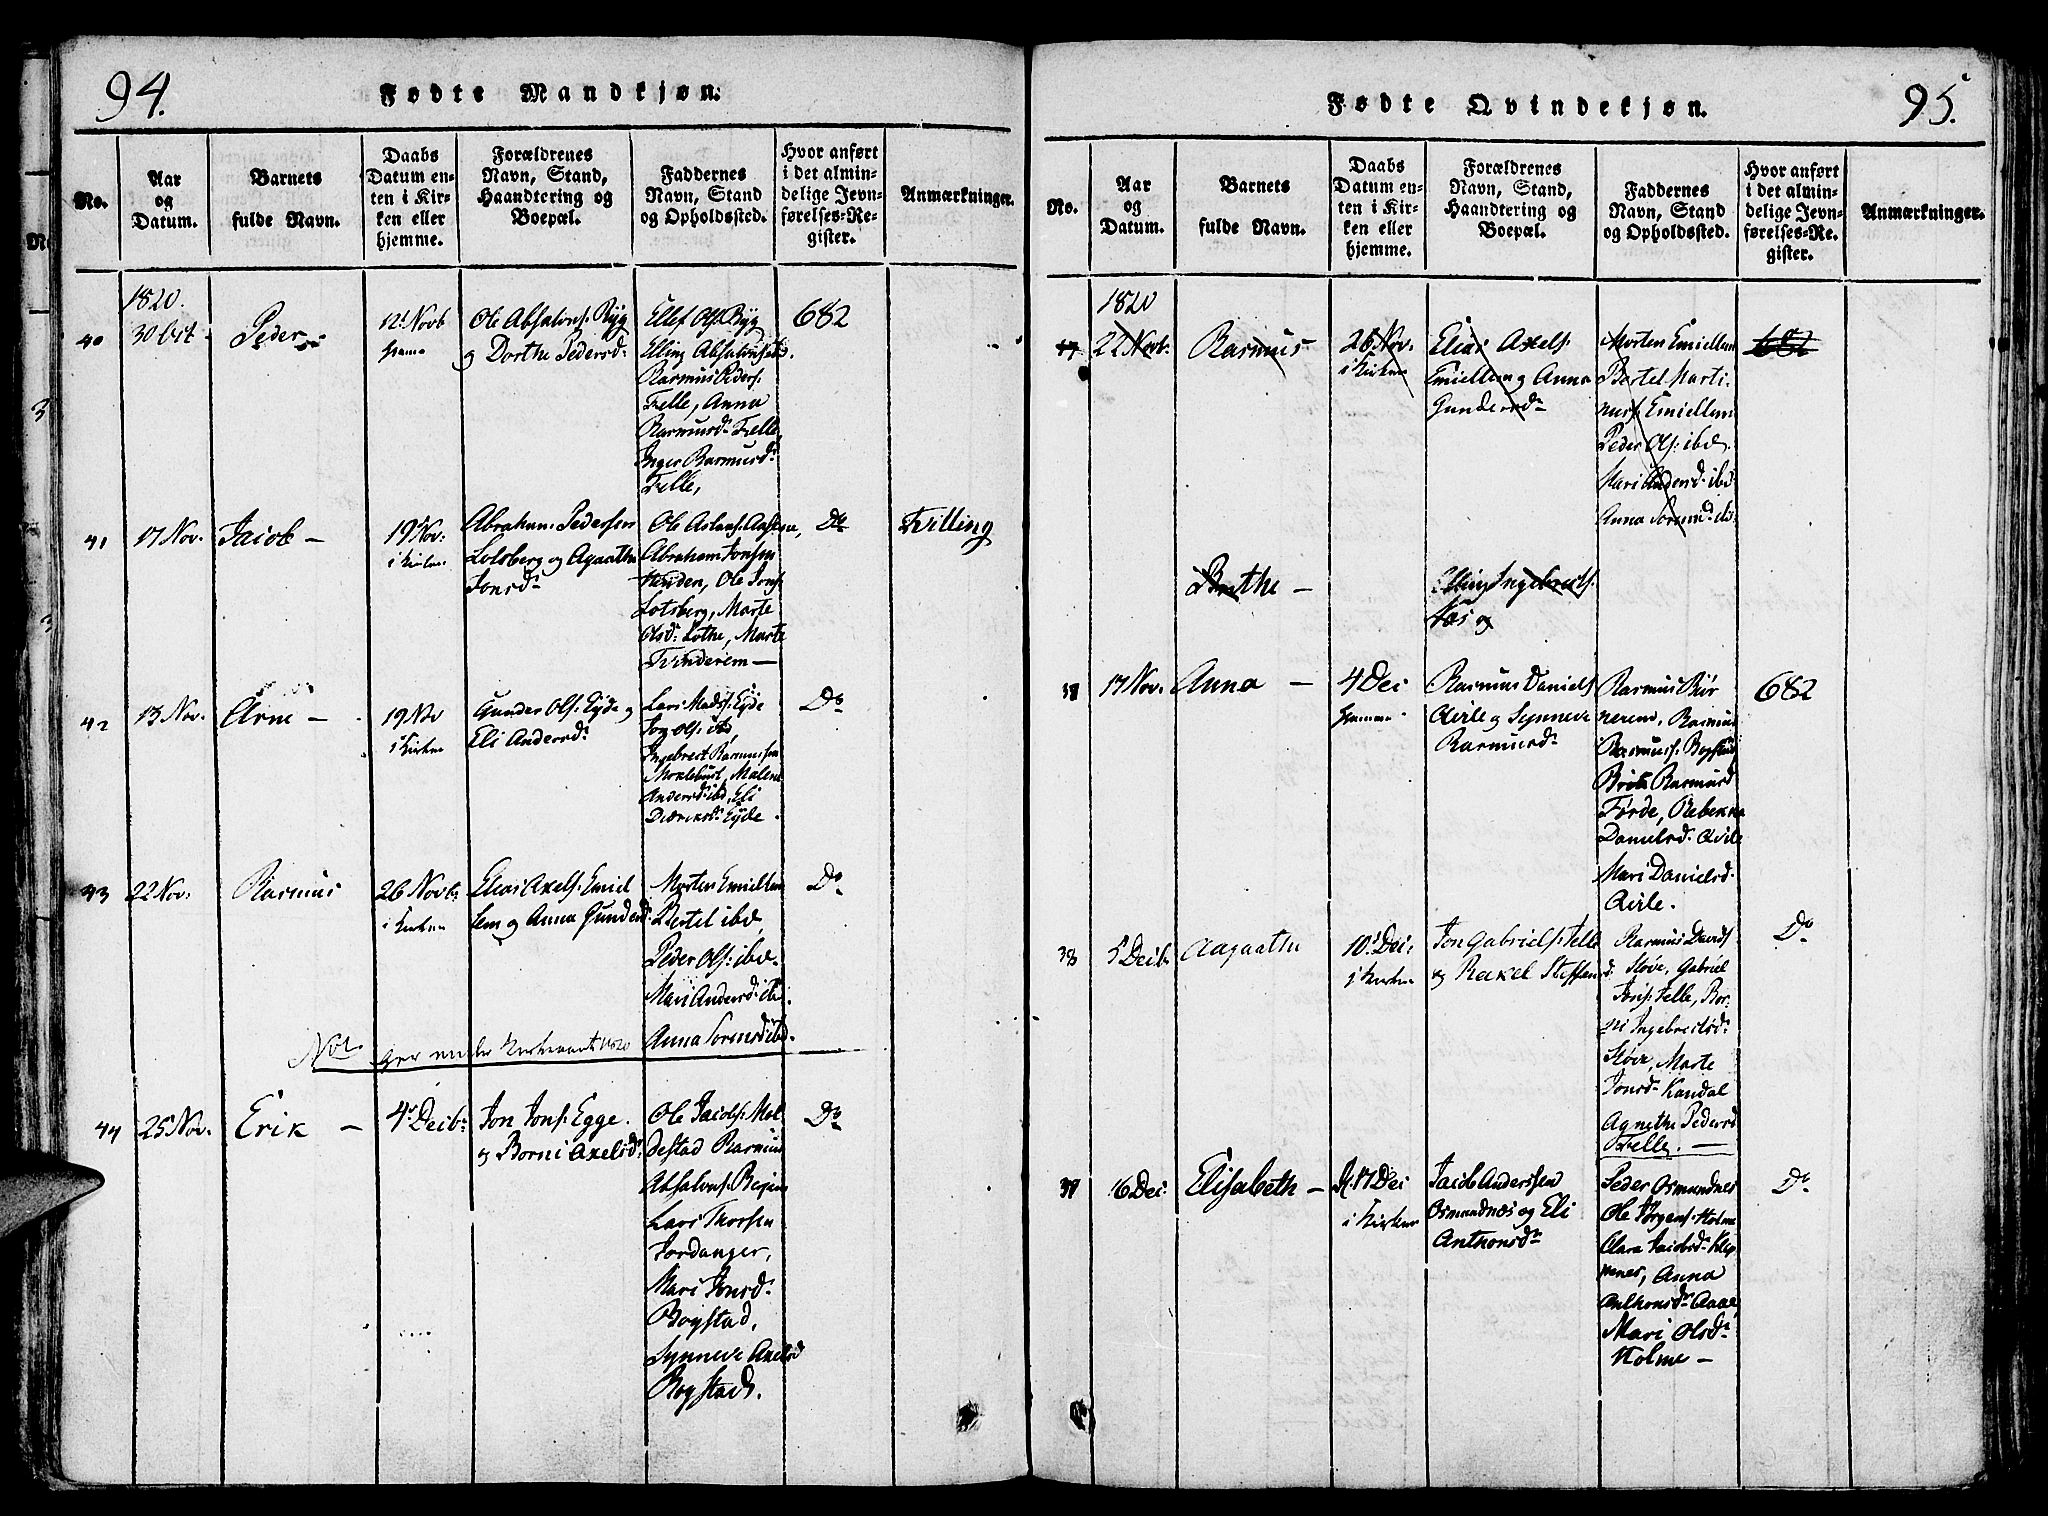 94.
Fødte Mandkjøn.
No.
Aar
og
Datum.
Barnets
fulde Navn.
Daabs
Datum en-
ten i Kir-
ken eller
hjemme.
Forældrenes
Navn, Stand,
Haandtering og
Boepæl.
Faddernes
Navn, Stand
og Opholdssted.
Hvor anført
i det almin-
delige Jevn-
førelses-Re-
gister.
Anmærkninger.
1820.
40
30 Oct
Peder
12 Novb
hjemme
Ole Absalons: Ryg
og Dorthe Pedersd:
Ellef Ols: Ryg
Elling Absalons:
Rasmus Peders:
Felle, Anna
Rasmusd: Felle
Inger Rasmusd:
Felle,
682
41
17 Nov.
Jacob –
19 Nov.
i Kirken
Abraham Pedersen
Lotsberg og Agaathe
Jonsd:
Abraham Jonsen
Hunden, Ole Jons:
Lotsberg, Marte
Olsd: Lothe, Marte
Tvinderem –
Do
Tvilling
42
13 Nov.
Arne –
19 Nov
i Kirken
Gunder Ols: Eyde og
Eli Andersd:
Lars Mads: Eyde
Jon Ols: ibd,
Ingebret Rasmussen
Myklebust, Malene
Andersd: ibd, Eli
Didriksd: Eyde.
Do
43
22 Nov.
Rasmus
26 Novb:
i Kirken
Elias Axels: Emiel
lem og Anna Gundersd:
Morten Emiellem
Bertel ibd,
Peder Ols: ibd.
Mari Andersd: ibd.
Anna Sorensd: ibd.
Do
44
25 Nov.
Erik –
4 Decb:
Jon Jons: Egge.
og Borni Axelsd:
Ole Jacobs: Mol
destad Rasmus
Absalons:
Lars Thorsen
Jordanger,
Mari Jonsd:
Bogstad,
Synneve Axelsd
Bogstad.
Do
95.
Fødte Qvindekjøn.
No.
Aar
og
Datum.
Barnets
fulde Navn.
Daabs
Datum en-
ten i Kir-
ken eller
hjemme.
Forældrenes
Navn, Stand,
Haandtering og
Boepæl.
Faddernes
Navn, Stand
og Opholdssted.
Hvor anført
i det almin-
delige Jevn-
førelses-Re-
gister.
Anmærkninger.
1820
22 Novb.
Rasmus
26 Nov.
i Kirken
Elias Axels:
Emiellem og Anna
Gundersd:
Morten Emiellem
Bertel Marti
nus: Emiellem
Peder Ols: ibd.
Mari Andersd: ibd
Anna Sorensd: ibd.
682
Brithe –
Elling Ingebrets:
Næs og
17 Nov.
Anna –
4 Dec
hjemme
Rasmus Daniels
Qvile og Synneve
Rasmusd:
Rasmus
nerem, Rasmus
Rasmuss: Bogstad
Brite Rasmusd
Førde, Rebekka
Danielsd: Qvile
Mari Danielsd.
Qvile.
682
38
5 Decb.
Aagaathe
10 Dec:
i Kirken
Jon Gabriels: Felle
og Rakel Steffens
d:
Rasmus Davids
Støve, Gabriel
Jons: Felle, Bor
ni Ingebretsd:
Støve, Marte
Jonsd: Kandal
Agnethe Pedersd
Felle. –
Do
39
16 Dec.
Elisabeth –
17 Dec
i Kirken
Jacob Anderssen
Osmundnæs og Eli
Anthonsd:
Peder Osmundnes
Ole Jørgens: Holme
Clara Jacobsd: Klep
penes, Anna
Anthonsd: Aaae
Mari Olsd:
Holme –
Do